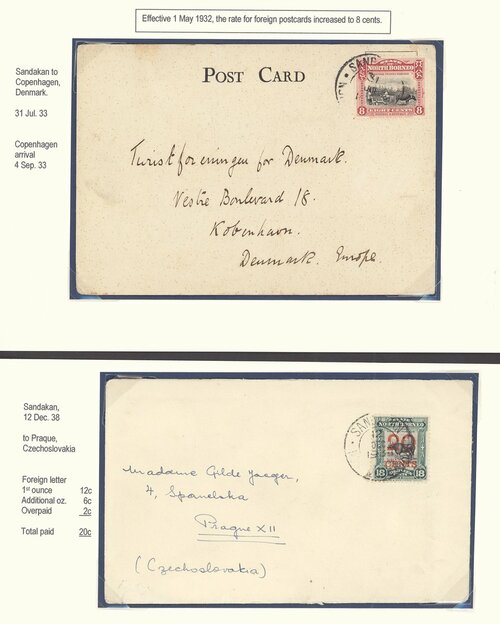 Effective 1 May 1932, the rate for foreign postcards increased to 8 cents.
Sandakan to
Copenhagen,
Denmark.
31 Jul. 33
Copenhagen
arrival
4 Sep. 33
POST CARD
NORTH BORNEO
8 EIGHT CENTS 8
Turistforeningen for Denmark.
Vestre Boulevard 18.
Kobenhavn.
Denmark. Europe.
Sandakan,
12 Dec. 38
to Praque,
Czechoslovakia
Foreign letter
1st ounce 12c
Additional oz. 6c
Overpaid 2c
Total paid 20c
NORTH BORNEO
20
CENTS
18 18
Madame Gilde Jaeger,
4, Spanelska
Prague XII
(Czechoslovakia)